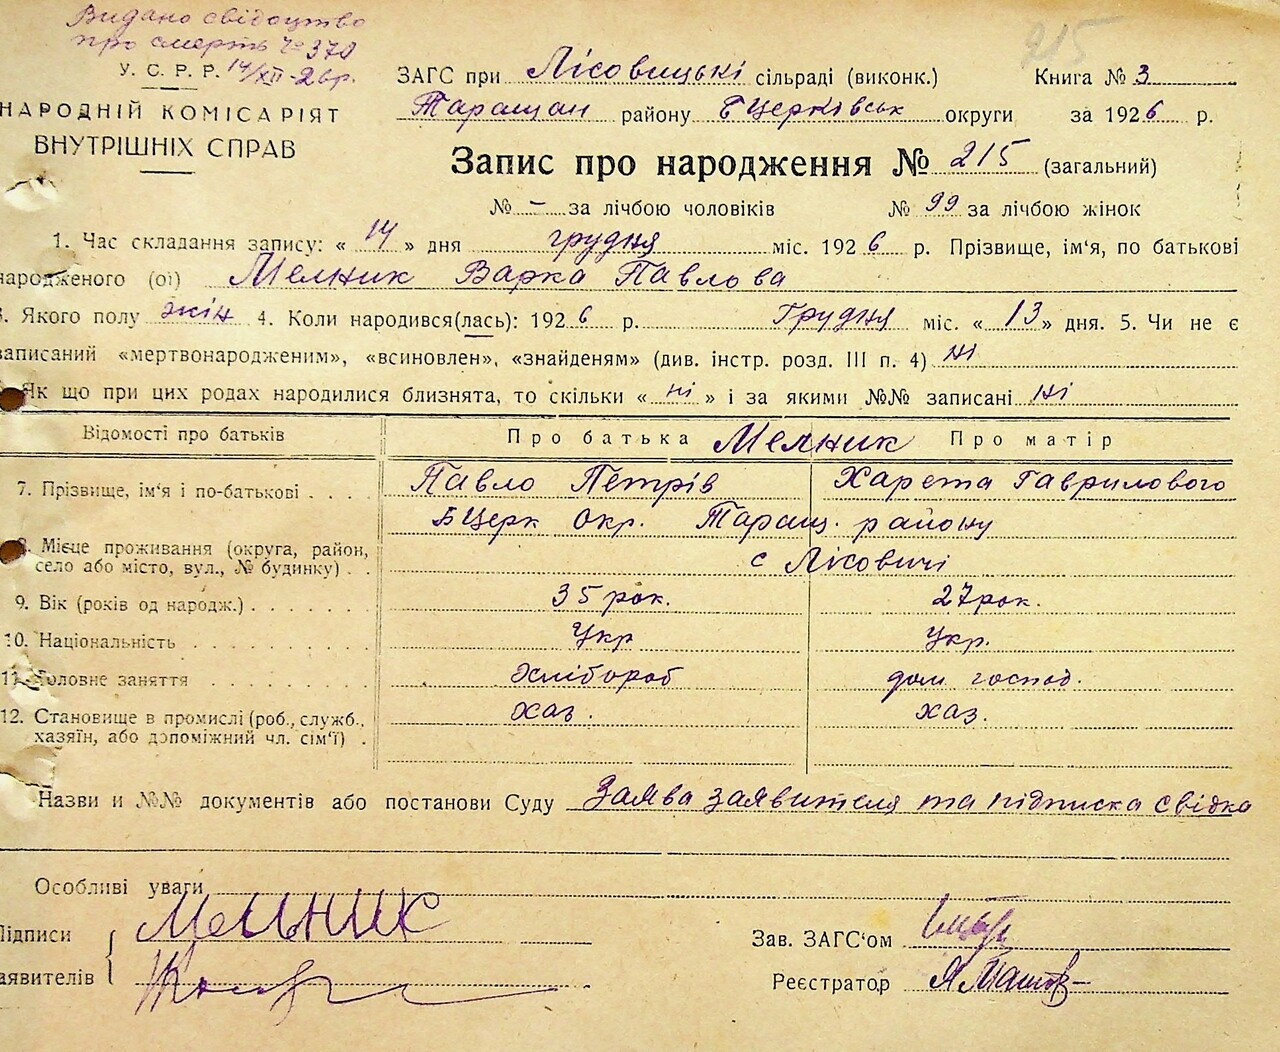 215
Видано свідоцтво
про смерть № 370
14/XII-26р.
У. С. Р. Р.
НАРОДНІЙ КОМІСАРІЯТ
ВНУТРІШНІХ СПРАВ
ЗАГС при Лісовицькі сільраді (виконк.) Книга № 3
Таращан району БЦерківськ округи за 1926 р.
Запис про народження № 215 (загальний)
№ - за лічбою чоловіків № 99 за лічбою жінок
1. Час складання запису: « 14 » дня грудня міс. 1926 р. Прізвище, ім'я, по батькові
народженого (ої) Мелник Варка Павлова
3. Якого полу жін 4. Коли народився(лась): 1926 р. Грудня міс. « 13 » дня. 5. Чи не є
записаний «мертвонародженим», «всиновлен», «знайденям» (див. інстр. розд. III п. 4) ні
Як що при цих родах народилися близнята, то скільки « ні » і за якими №№ записані ні
Відомості про батьків Про батька Мелник Про матір
7. Прізвище, ім'я і по-батькові . . . Павло Петрів Харета Гаврилового
БЦерк Окр. Таращ. району
8. Місце проживання (округа, район,
село або місто, вул., № будинку) . . с Лісовичі
9. Вік (років од народж.) . . . . . . . 35 рок. 27 рок.
10. Національність . . . . . . . . . . Укр Укр.
11. Головне заняття . . . . . . . . . Хлібороб дом господ.
12. Становище в промислі (роб., служб., хаз. хаз.
хазяїн, або допоміжний чл. сім'ї) .
Назви и №№ документів або постанови Суду Заява заявителя та підписка свідка
Особливі уваги
Підписи Мельник Зав. ЗАГС'ом
заявителів Реєстратор